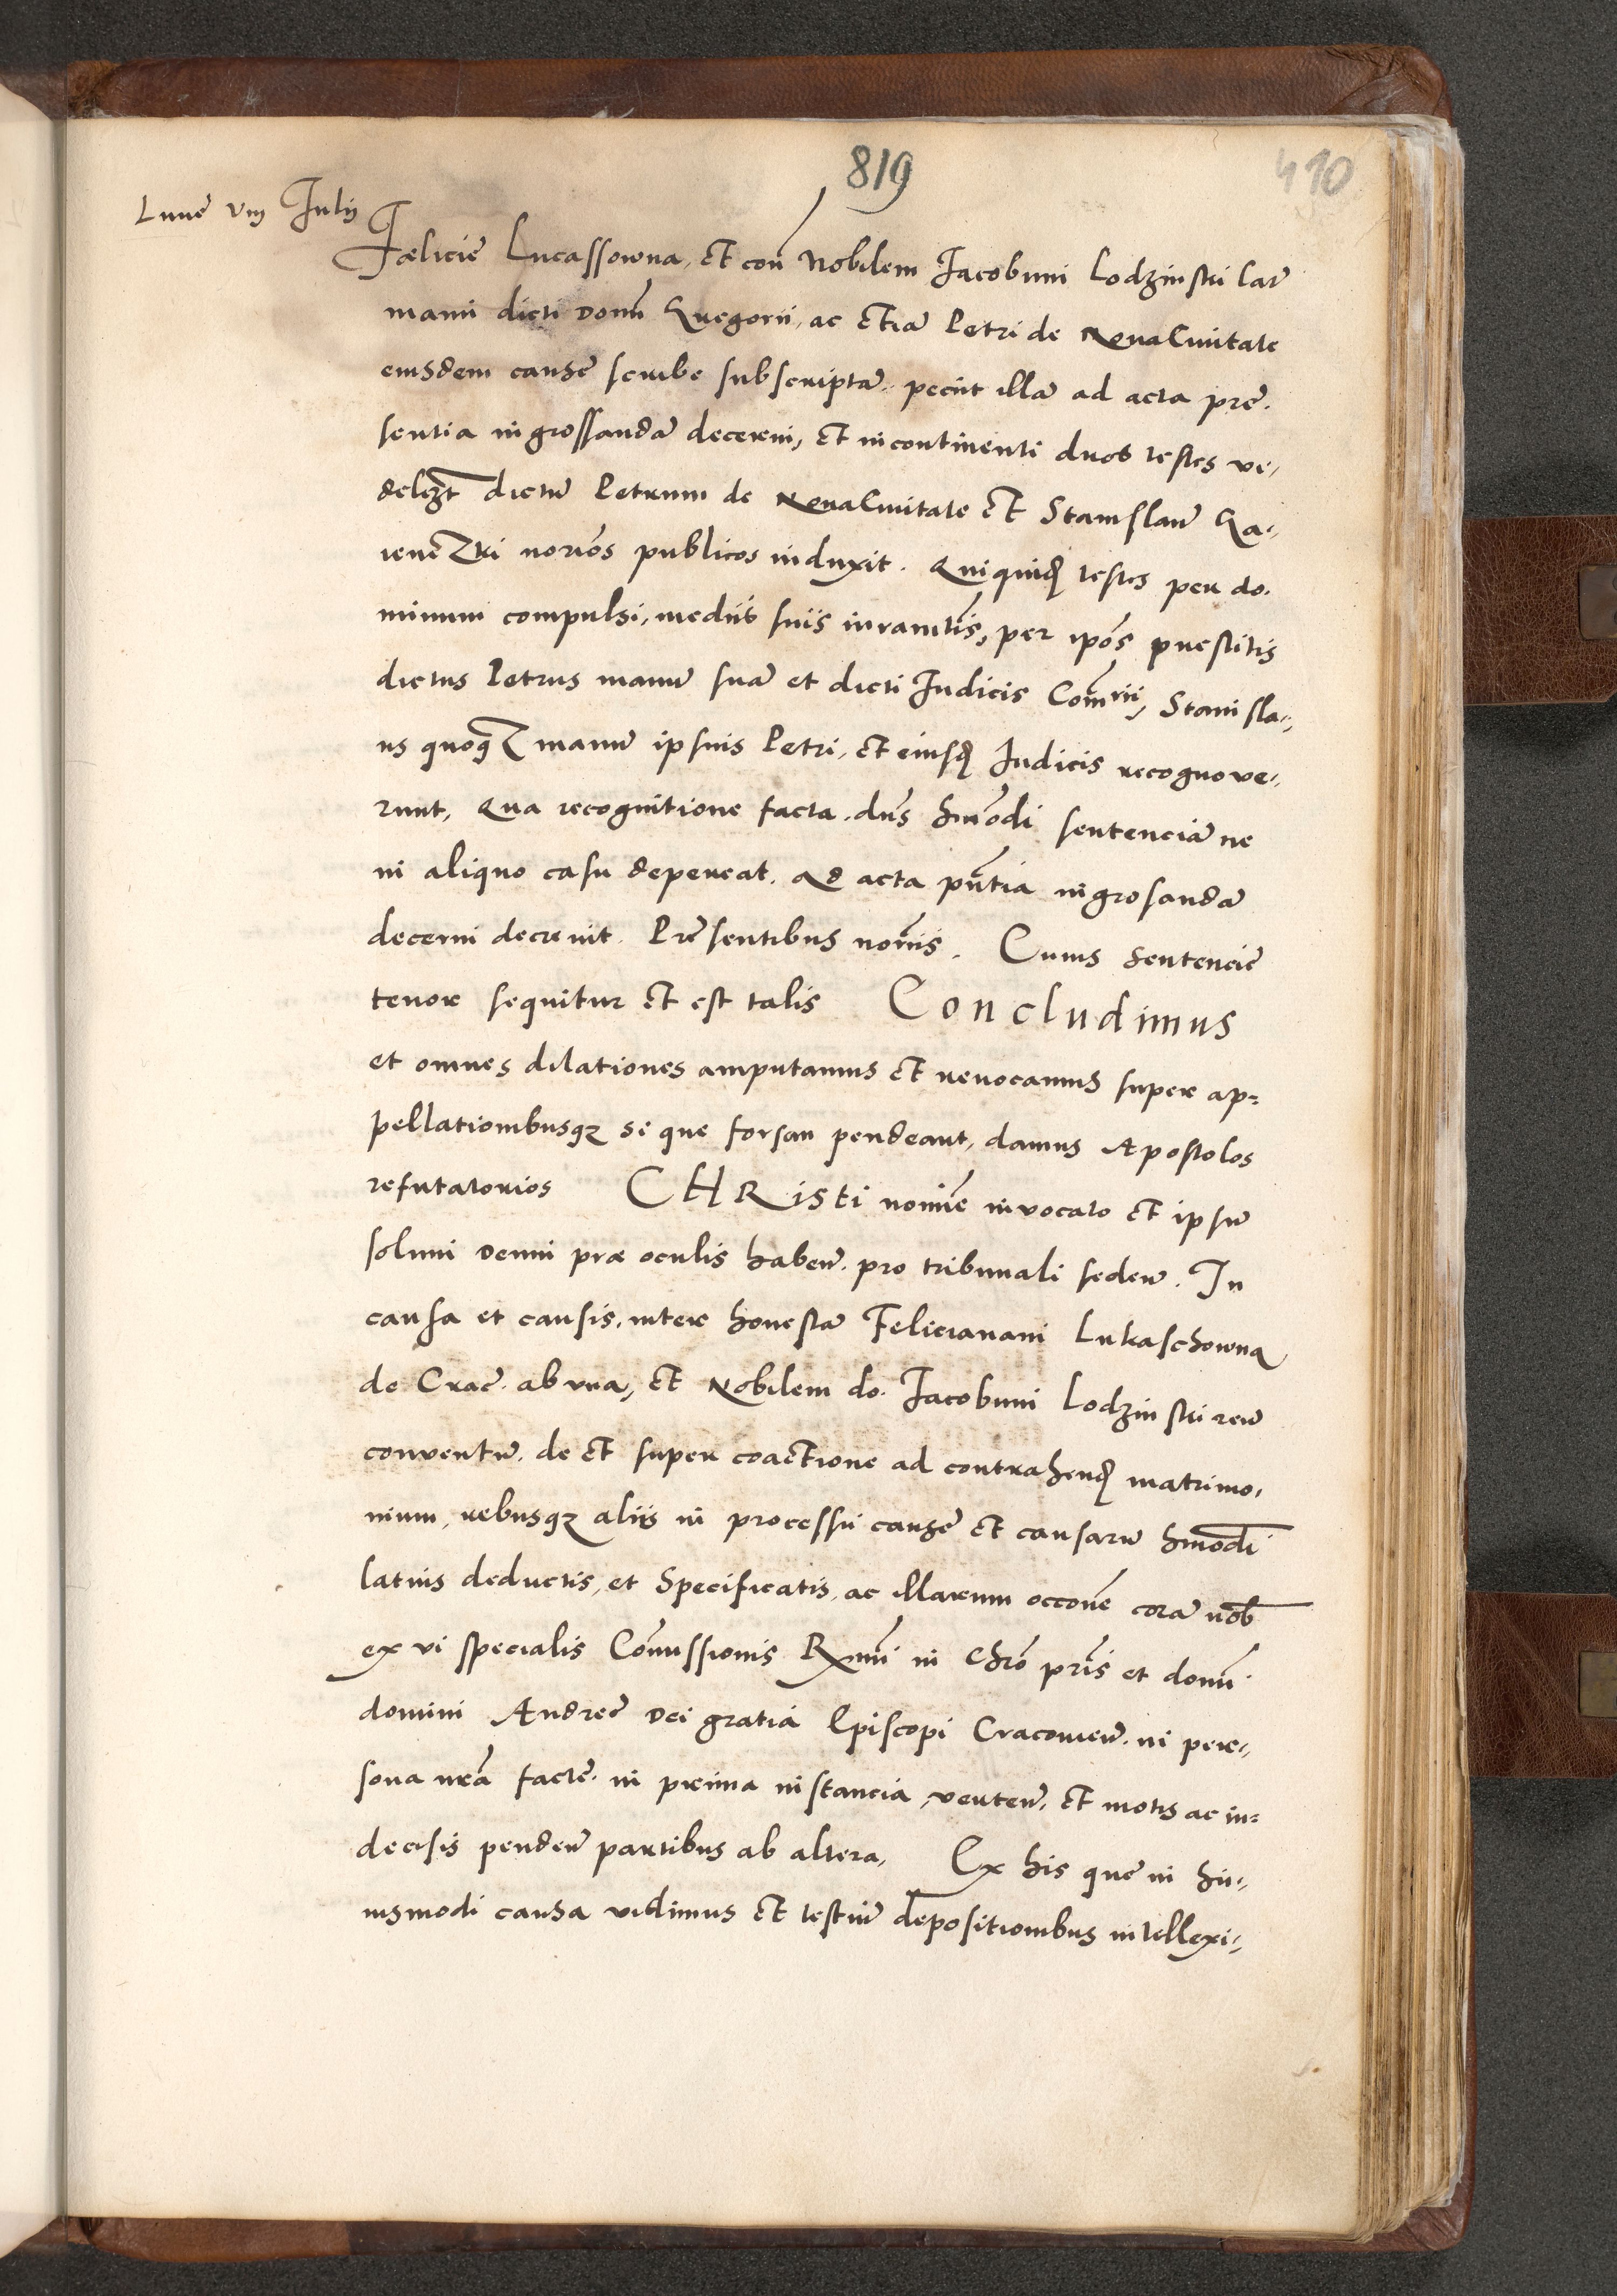 819
410
Lune viij Julij
Fœlicie Lucassowna, et con̄ Nobilem Jacobum Lodzinski lar
manu dicti domī Gregorii, ac etiā Petri de Noua Ciuitate
eiusdem cause scribe subscriptā. peciit illā ad acta pre.
sentia ingrossandā decerni, et incontinenti duos testes vi,
delizt dictū Petrum de Noua Ciuitate et Stanislaū Ga,
notrōs publicos induxit. Qui quidē testes per do.
minum compulsi, mediis suis iuramtīs, per ipōs prestitis
dictus Petrus manū suā et dicti Judicis Com̄rii, Stanisla,
us quoqȝ manū ipsuis Petri, et eiusdē Judicis recognoue,
runt, Qua recognitione facta. dn̄s hmōdi sentenciā ne
in aliquo casu depereat. ad acta pn̄tia ingrosandā
decerni decreuit. Presentibus notr̄iis. Cuius sentencie
tenor sequitur et est talis Concludimus
et omnes dilationes amputamus et reuocamus super ap=
pellationibusqȝ si que forsan pendeant, damus Apostolos
refutatorios CHRisti nomīe inuocato et ipsū
solum deum præ oculis habeñ. pro tribunali sedeñ. In
causa et causis, inter honestā Felicianam Lukaschowna
de Crac̄. ab vna, et Nobilem do. Jacobum Lodzinski reū
conventū. de et super coactione ad contrahendū matrimo,
nium, rebusqȝ aliis in processu cause et causarū hmōdi
latius deductis, et Specificatis, ac illarum occōne corā nob̄
ex vi specialis Com̄issionis Rx̄mi in Chrō prīs et domī
domini Andree dei gratia Episcopi Cracouieñ. in per,
sona nrā facte. in prima instancia, verteñ, et motis ac in=
decisis pendeñ partibus ab altera, Ex his que in hu,
iusmodi causa vidimus et testiū depositionibus intellexi,